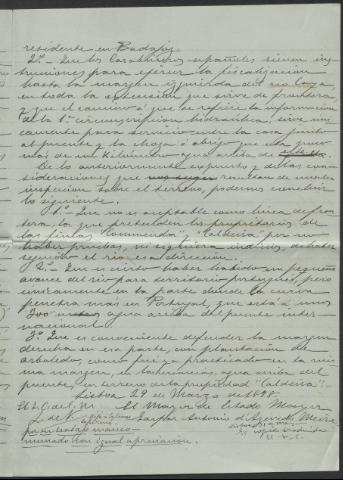 residente en Badajoz.
2º.- Que los Carabineros españoles tienen ins-
trucciones para ejercer la fiscalizacion
hasta la margen izquierda del rio Caya
en toda la extension que sirve de frontera,
y que el camino á que se refiere la informacion
de la 1ª circunscripcion hidraulica, sirve uni-
camente para servicio entre la casa junto
al puente y la choza ó abrigo que esta poco
más de un Kilómetro agua arriba de
De lo anteriormente expuesto y de las con-
sideraciones que resultan de nuestra
inspeccion sobre el terreno, podemos concluir
lo siguiente.
1º.- Que no es aceptable como linea de fron-
tera, la que pretenden los propietarios de
las fincas "Comenda" y por no
haber pruebas, ni siquiera indicios, de haber
seguido el rio esa direccion.
2º.- Que es cierto haber habido un pequeño
avance del rio para territorio portugués, pero
unicamente en la parte donde la curva
penetra más en Portugal, que está á unos
300 metros agua arriba del puente inter-
nacional.
3º. Que es conveniente defender la margen
derecha en esa parte, con plantacion de
arboledo, como fué practicado en la mis-
ma margen, en agua arriba del
puente, en terreno de la propiedad "Caldeira".
Lisboa 29 de Marzo de 1898.
El Mayor de Estado Mayor
Gaspar Antonio d'Azevedo Meira
por un trabajo manco-
munado con igual apreciacion.